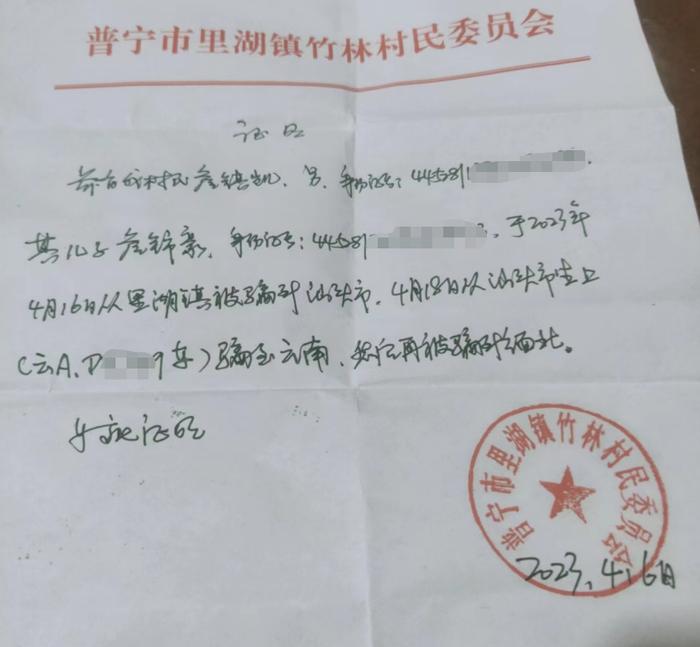 普宁市里湖镇竹林村民委员会
证明
兹有我村民詹镇凯、男、身份证号：445281
其儿子詹锦豪，身份证号：44581，于2023年
4月16日从里湖镇被骗到汕头市，4月18日从汕头市坐上
（云A、D9车）骗至云南，然后再被骗到缅北。
特此证明
普宁市里湖镇竹林村民委员会
2023.4.16日